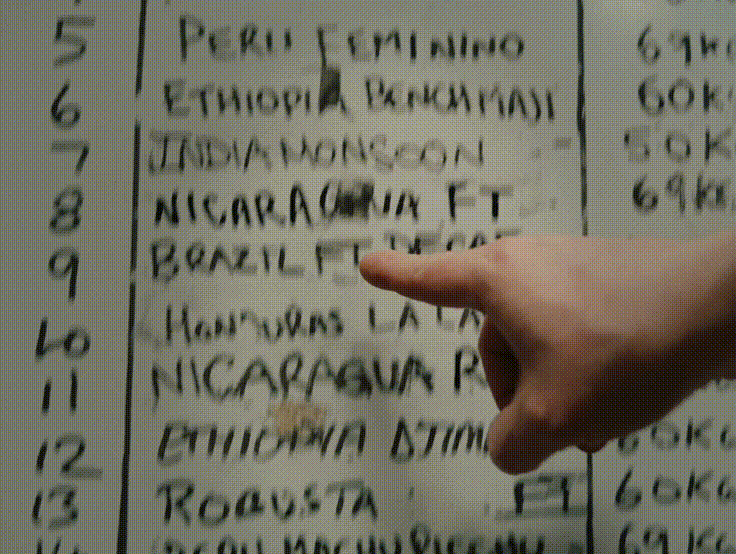 5 PERU FEMININO 69KG
6 ETHIOPIA BENCHMAJI 60K
7 INDIA MONSOON 50K
8 NICARAGUA FT 69KG
9 BRAZIL FT DECAF
10 HONDURAS LA LA
11 NICARAGUA R
12 ETHIOPIA DJIM 60KG
13 ROBUSTA FT 60KG
14 PERU MACHU PICCHU 69KG